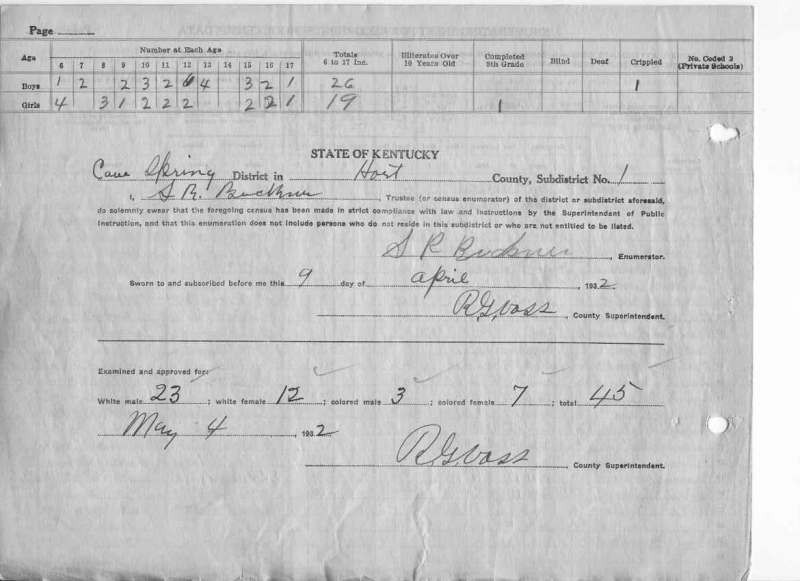 Page
Age Number at Each Age Totals 6 to 17 Inc. Illiterates Over 10 Years Old Completed 8th Grade Blind Deaf Crippled No. Coded 2 (Private Schools)
6 7 8 9 10 11 12 13 14 15 16 17
Boys 1 2 2 3 2 6 4 3 2 1 26 1
Girls 4 3 1 2 2 2 2 2 1 19 1
STATE OF KENTUCKY
Cave Spring District in Hart County, Subdistrict No. 1
I, S. R. Buckner, Trustee (or census enumerator) of the district or subdistrict aforesaid,
do solemnly swear that the foregoing census has been made in strict compliance with law and instructions by the Superintendent of Public
Instruction, and that this enumeration does not include persons who do not reside in this subdistrict or who are not entitled to be listed.
S R Buckner, Enumerator.
Sworn to and subscribed before me this 9 day of april, 1932.
R.G. Vass, County Superintendent.
Examined and approved for:
White male 23; white female 12; colored male 3; colored female 7; total 45
May 4, 1932
R.G. Vass, County Superintendent.